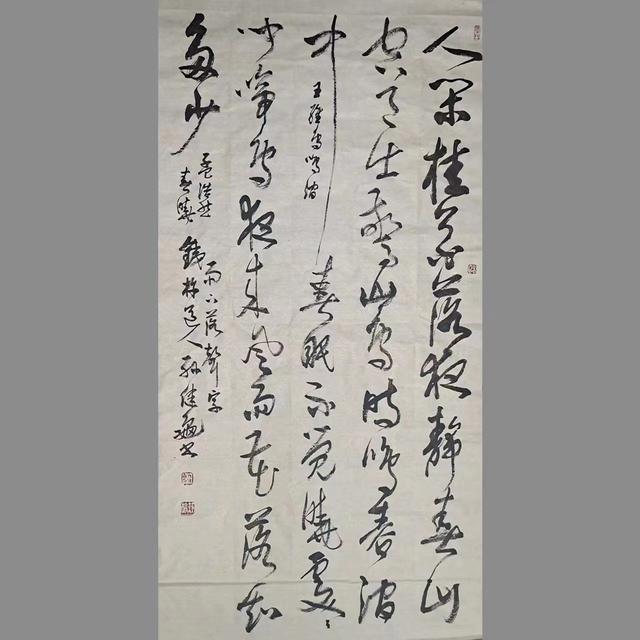 人閒桂花落夜靜春山
空月出驚山鳥時鳴春澗
中
王維鳥鳴澗
春眠不覺曉處々
聞啼鳥夜來風雨花落知
多少
孟浩然
春曉
雨下落聲字
道人孫書